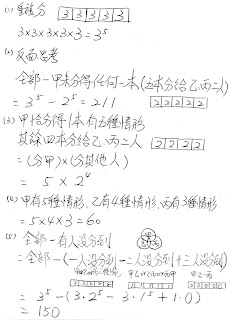 (1) 重複分 3 3 3 3 3
3×3×3×3×3 = 3⁵
(2) 反面思考
全部－甲未分得任何一本(五本分給乙丙二人)
= 3⁵ - 2⁵ = 211 2 2 2 2 2
(3) 甲恰分得1本有五種情形
其餘四本分給乙丙二人 2 2 2 2
= (分甲)×(分其他人)
= 5 × 2⁴
(4) 甲有5種情形,乙有4種情形,丙有3種情形
5×4×3=60
(5) 全部－有人沒分到
=全部－(一人沒分到－二人沒分到+三人沒分到)
2 2 2 2 2 1 1 1 1 1 0 0 0 0 0
= 3⁵ - (3·2⁵ - 3·1⁵ + 1·0)
= 150